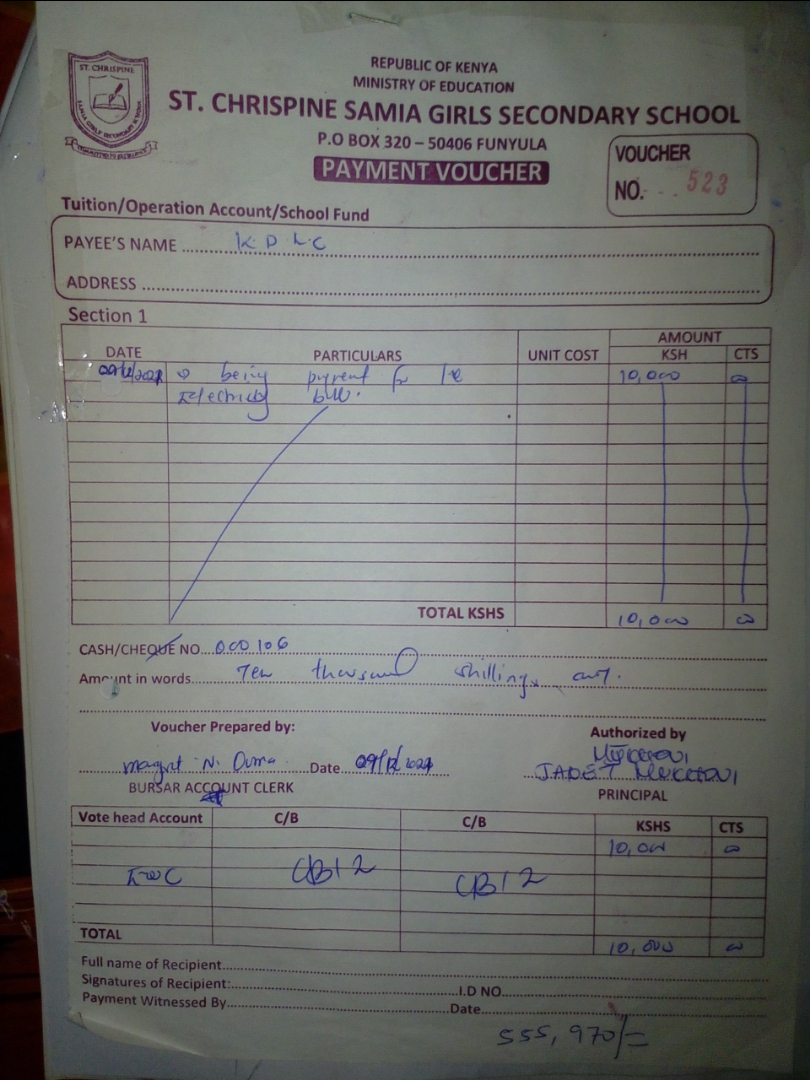 ST. CHRISPINE
SAMIA GIRLS SECONDARY SCHOOL
REPUBLIC OF KENYA
MINISTRY OF EDUCATION
ST. CHRISPINE SAMIA GIRLS SECONDARY SCHOOL
P.O BOX 320 – 50406 FUNYULA
PAYMENT VOUCHER
VOUCHER
NO. 523
Tuition/Operation Account/School Fund
PAYEE'S NAME K P L C
ADDRESS
Section 1
AMOUNT
DATE PARTICULARS UNIT COST KSH CTS
being payment for the 10,000 00
Electricity bill.
TOTAL KSHS 10,000 00
CASH/CHEQUE NO. 000106
Amount in words. Ten thousand shillings only.
Voucher Prepared by:
Authorized by
N. Ouma Date 09/12/2024
JADET
BURSAR ACCOUNT CLERK
PRINCIPAL
Vote head Account C/B C/B KSHS CTS
10,000 00
EWC CB12 CB12
TOTAL 10,000 00
Full name of Recipient
Signatures of Recipient: I.D NO
Payment Witnessed By Date
555,970/=